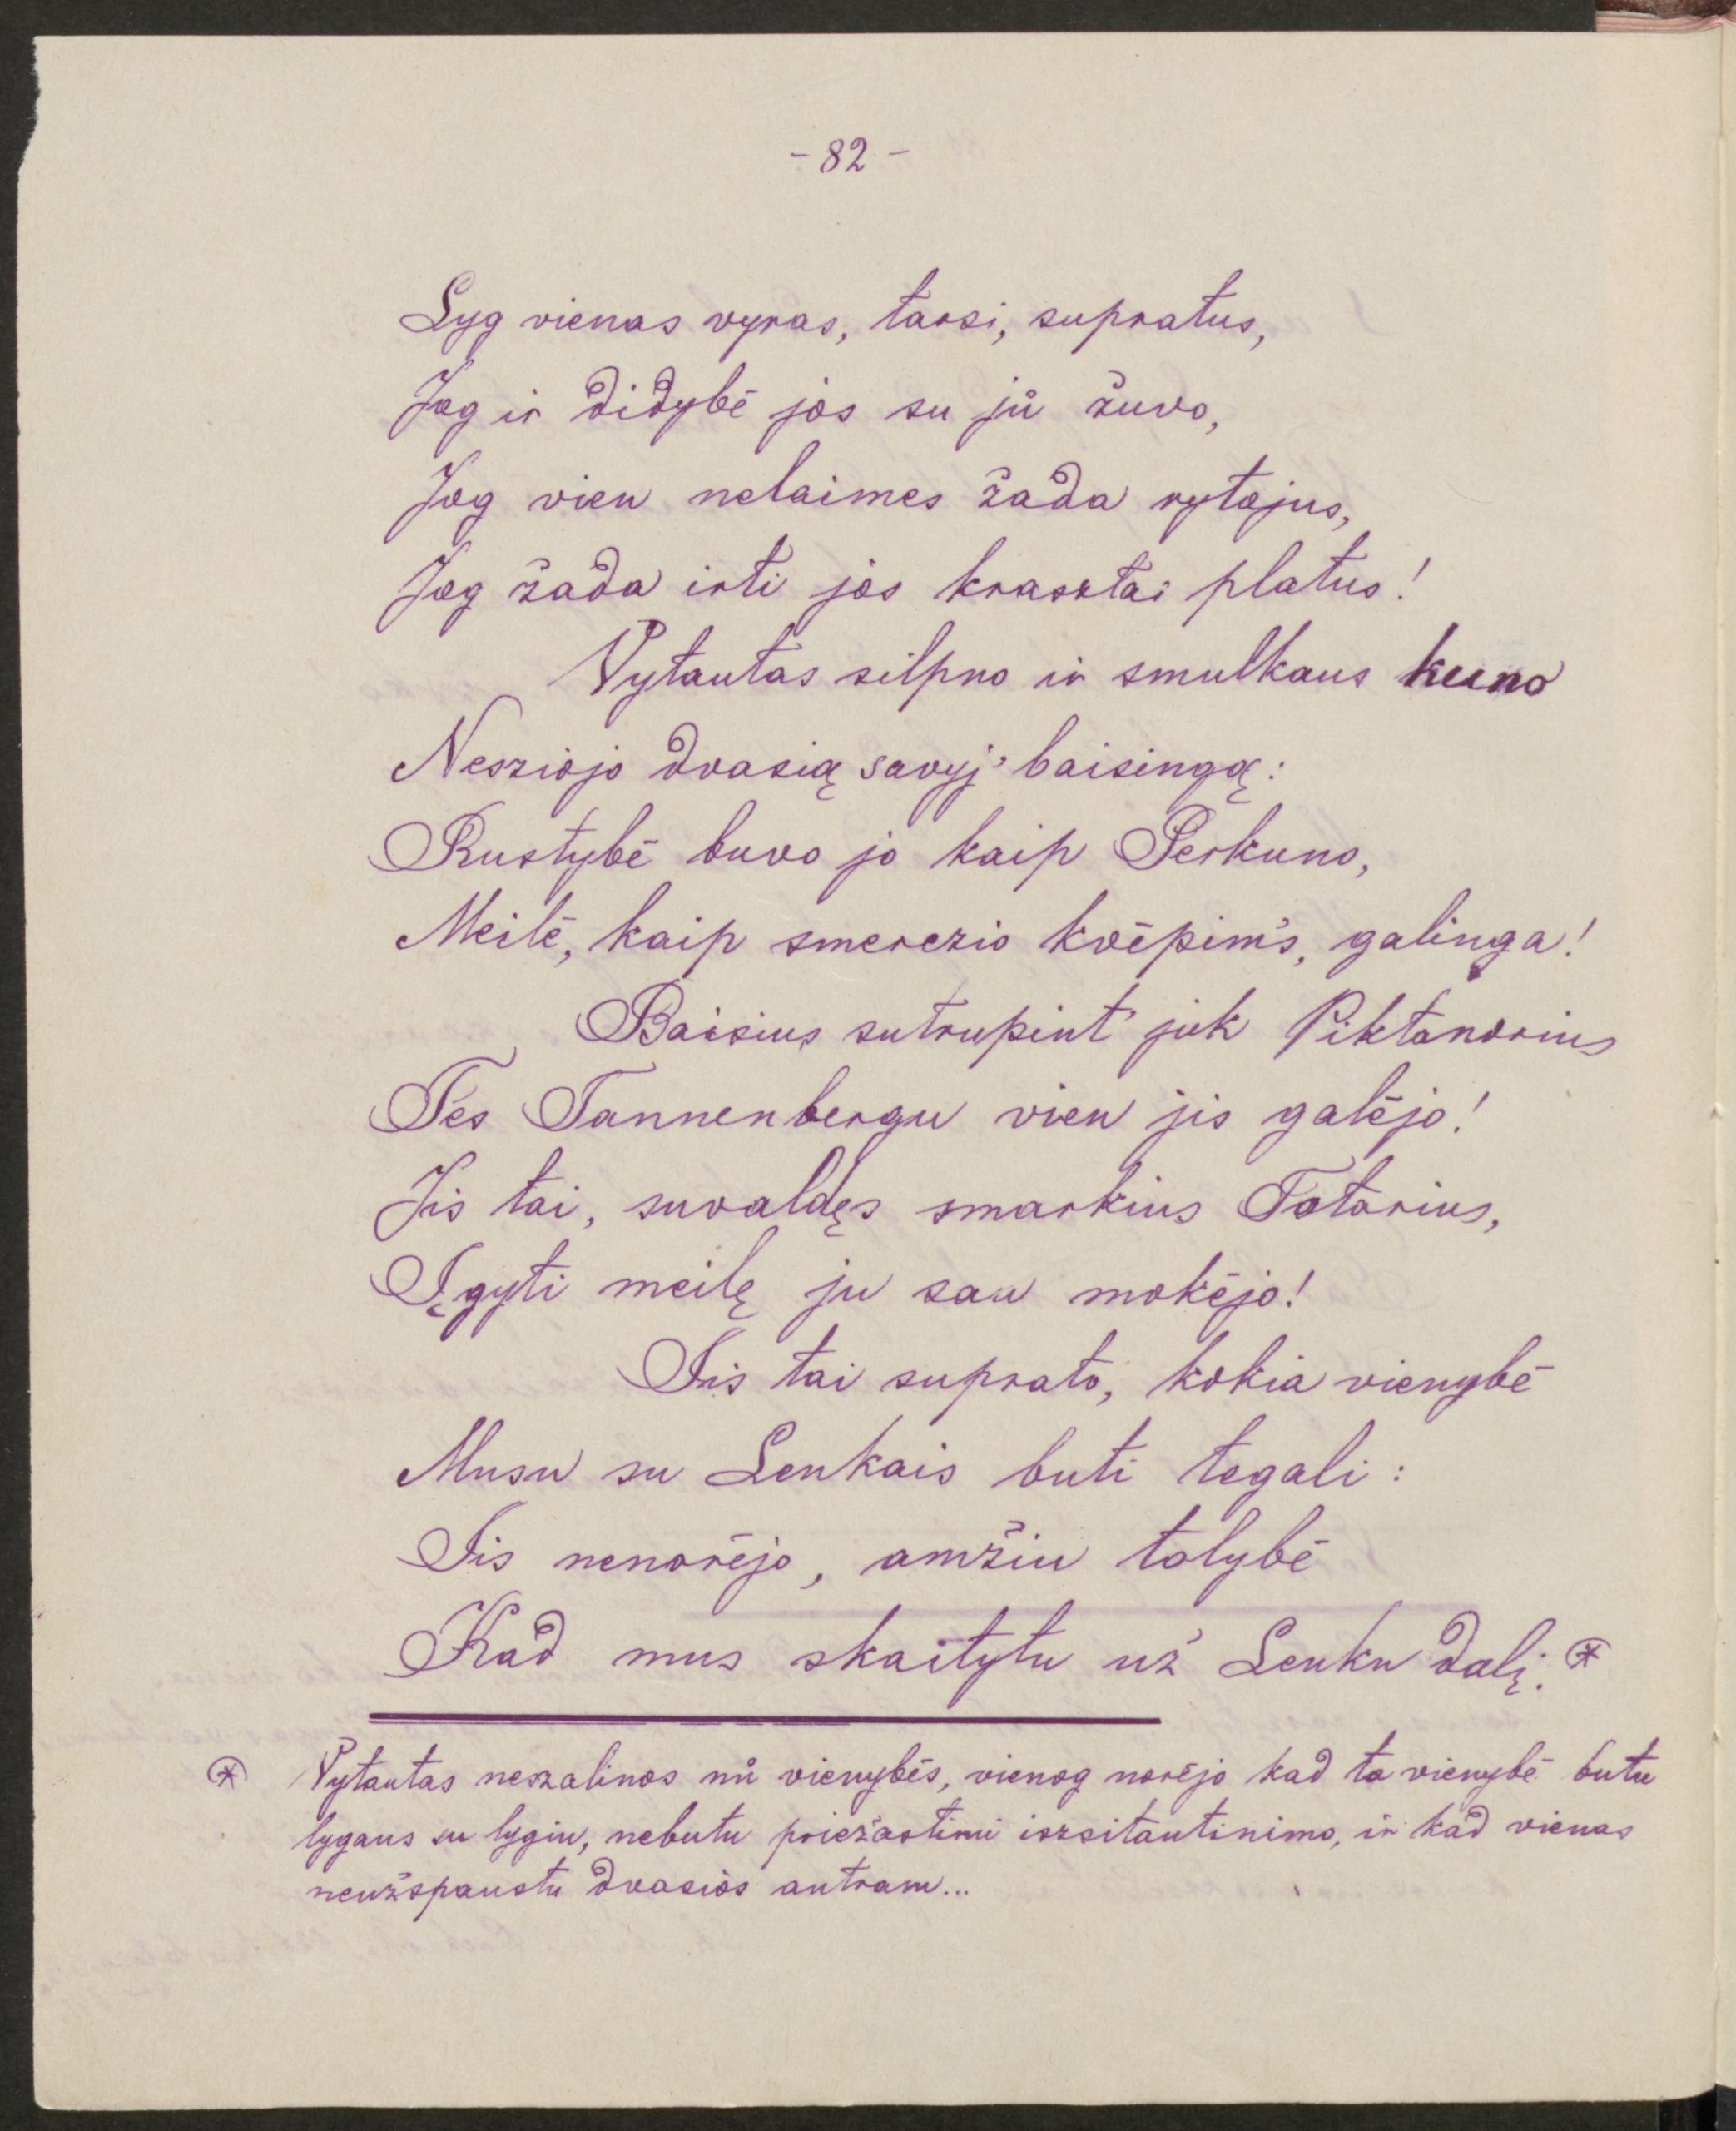 - 82 -
Lyg vienas vyras, tarsi, supratus,
Jog ir didybė jos su jů žuvo,
Jog vien nelaimes žada rytojus,
Jog žada irti jos krasztai platus!
Vytautas silpno ir smulkaus kuno
Nesziojo dvasią savyj' baisingą:
Rustybė buvo jo kaip Perkuno,
Meilė, kaip smerczio kvėpim's, galinga!
Baisius sutrupint' juk Piktanorius
Ties Tannenbergu vien jis galėjo!
Jis tai, suvaldęs smarkius Totorius,
Įgyti meilę ju sau mokėjo!
Jis tai suprato, kokia vienybė
Musu su Lenkais buti tegali:
Jis nenorėjo, amžiu tolybė
Kad mus skaitytu už Lenku dalį. *
* Vytautas neszalinos nů vienybės, vienog norėjo kad ta vienybė butu
lygaus su lygiu, nebutu priežastimi iszsitautinimo, ir kad vienas
neužspaustu dvasios antram...